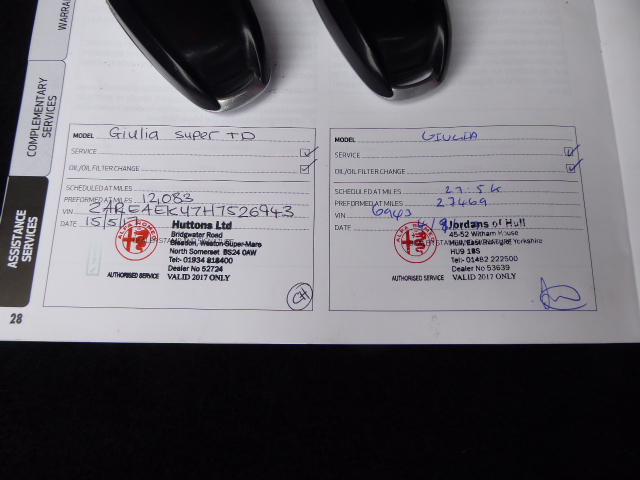 WARRA
COMPLEMENTARY
SERVICES
ASSISTANCE
SERVICES
28
MODEL Giulia super TD
SERVICE
OIL/OIL FILTER CHANGE
SCHEDULED AT MILES
PREFORMED AT MILES 12,083
VIN ZAREAEKU7H7526943
DATE 15/5/17
Huttons Ltd
Bridgwater Road
Bleadon, Weston-Super-Mare
North Somerset BS24 0AW
Tel:- 01934 818400
Dealer No 52724
AUTHORISED SERVICE VALID 2017 ONLY
ALFA ROMEO
CH
MODEL GIULIA
SERVICE
OIL/OIL FILTER CHANGE
SCHEDULED AT MILES 27.5K
PREFORMED AT MILES 27469
VIN 6943
DATE 4/9
Jordans of Hull
45-52 Witham House
Hull, East Riding of Yorkshire
HU9 1BS
Tel:- 01482 222500
Dealer No 53639
AUTHORISED SERVICE VALID 2017 ONLY
ALFA ROMEO